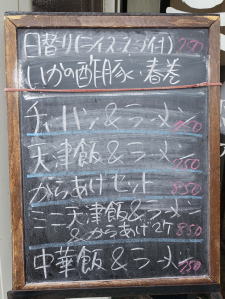 日替り(ライス・スープ付)
いかの酢豚・春巻
チャーハン&ラーメン
天津飯&ラーメン
からあげセット 850
ミニ天津飯&ラーメン
&からあげ2ケ 850
中華飯&ラーメン